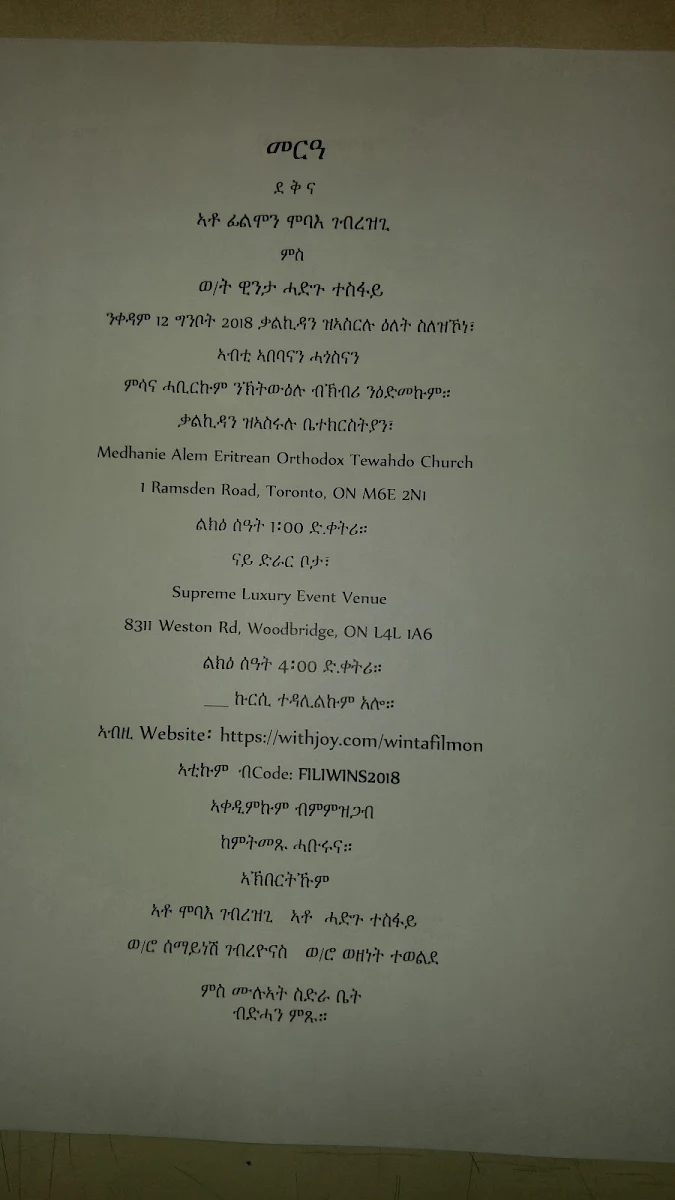 መርዓ
ደ ቅ ና
ኣቶ ፊልሞን ሞባእ ገብረዝጊ
ምስ
ወ/ት ዊንታ ሓድጉ ተስፋይ
ንቀዳም 12 ግንቦት 2018 ቃልኪዳን ዝኣስርሉ ዕለት ስለዝኾነ፣
ኣብቲ ኣበባናን ሓጎስናን
ምሳና ሓቢርኩም ንኽትውዕሉ ብኽብሪ ንዕድመኩም።
ቃልኪዳን ዝኣስሩሉ ቤተክርስትያን፣
Medhanie Alem Eritrean Orthodox Tewahdo Church
1 Ramsden Road, Toronto, ON M6E 2N1
ልክዕ ሰዓት 1፡00 ድ.ቀትሪ።
ናይ ድራር ቦታ፣
Supreme Luxury Event Venue
8311 Weston Rd, Woodbridge, ON L4L 1A6
ልክዕ ሰዓት 4፡00 ድ.ቀትሪ።
___ ኩርሲ ተዳሊልኩም አሎ።
ኣብዚ Website፡ https://withjoy.com/wintafilmon
ኣቲኩም ብCode: FILIWINS2018
ኣቀዲምኩም ብምምዝጋብ
ከምትመጹ ሓቡሩና።
ኣኽበርትኹም
ኣቶ ሞባእ ገብረዝጊ ኣቶ ሓድጉ ተስፋይ
ወ/ሮ ሰማይነሽ ገብረዮናስ ወ/ሮ ወዘነት ተወልደ
ምስ ሙሉኣት ስድራ ቤት
ብድሓን ምጹ።